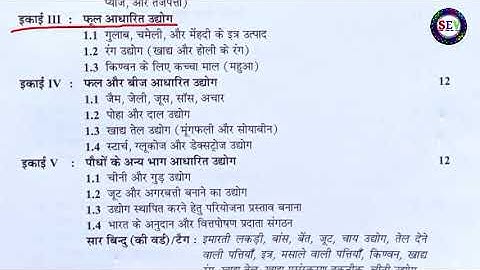 प्याज, और तेजपत्ता)
इकाई III : फूल आधारित उद्योग
1.1 गुलाब, चमेली, और मेंहदी के इत्र उत्पाद
1.2 रंग उद्योग (खाद्य और होली के रंग)
1.3 किण्वन के लिए कच्चा माल (महुआ)
इकाई IV : फल और बीज आधारित उद्योग 12
1.1 जैम, जेली, जूस, सॉस, अचार
1.2 पोहा और दाल उद्योग
1.3 खाद्य तेल उद्योग (मूंगफली और सोयाबीन)
1.4 स्टार्च, ग्लूकोज और डेक्स्ट्रोज उद्योग
इकाई V : पौधों के अन्य भाग आधारित उद्योग 12
1.1 चीनी और गुड़ उद्योग
1.2 जूट और अगरबत्ती बनाने का उद्योग
1.3 उद्योग स्थापित करने हेतु परियोजना प्रस्ताव बनाना
1.4 भारत के अनुदान और वित्तपोषण प्रदाता संगठन
सार बिन्दु (की वर्ड)/टैग : इमारती लकड़ी, बांस, बेंत, जूट, चाय उद्योग, तेल देने
वाली पत्तियाँ, इत्र, मसाले वाली पत्तियाँ, किण्वन, खाद्य
रंग, खाद्य तेल, खाद्य प्रसंस्करण तकनीक, चीनी उद्योग
SEV